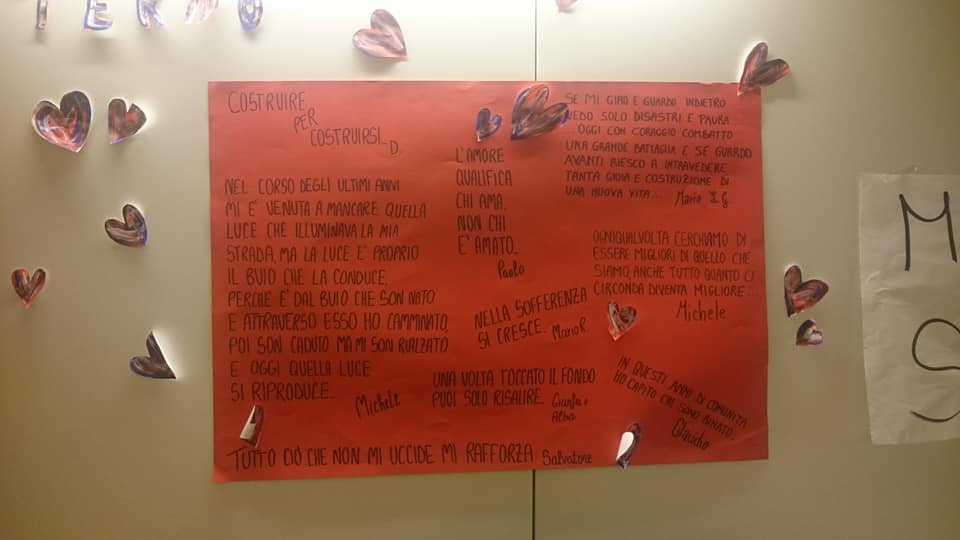 TERMO
COSTRUIRE
PER
COSTRUIRSI... D.
NEL CORSO DEGLI ULTIMI ANNI
MI E' VENUTA A MANCARE QUELLA
LUCE CHE ILLUMINAVA LA MIA
STRADA, MA LA LUCE E' PROPRIO
IL BUIO CHE LA CONDUCE.
PERCHE E' DAL BUIO CHE SON NATO
E ATTRAVERSO ESSO HO CAMMINATO,
POI SON CADUTO MA MI SON RIALZATO
E OGGI QUELLA LUCE
SI RIPRODUCE...
Michele
L'AMORE
QUALIFICA
CHI AMA.
NON CHI
E' AMATO.
Paolo
SE MI GIRO E GUARDO INDIETRO
VEDO SOLO DISASTRI E PAURA...
...OGGI CON CORAGGIO COMBATTO
UNA GRANDE BATTAGLIA E SE GUARDO
AVANTI RIESCO A INTRAVEDERE
TANTA GIOIA E COSTRUZIONE DI
UNA NUOVA VITA... Mario
OGNIQUALVOLTA CERCHIAMO DI
ESSERE MIGLIORI DI QUELLO CHE
SIAMO, ANCHE TUTTO QUANTO CI
CIRCONDA DIVENTA MIGLIORE...
Michele
NELLA SOFFERENZA
SI CRESCE.
UNA VOLTA TOCCATO IL FONDO
PUOI SOLO RISALIRE.
IN QUESTI ANNI DI COMUNITÀ
HO CAPITO CHE SONO RINATO.
Claudio
TUTTO CIÒ CHE NON MI UCCIDE MI RAFFORZA Salvatore
M